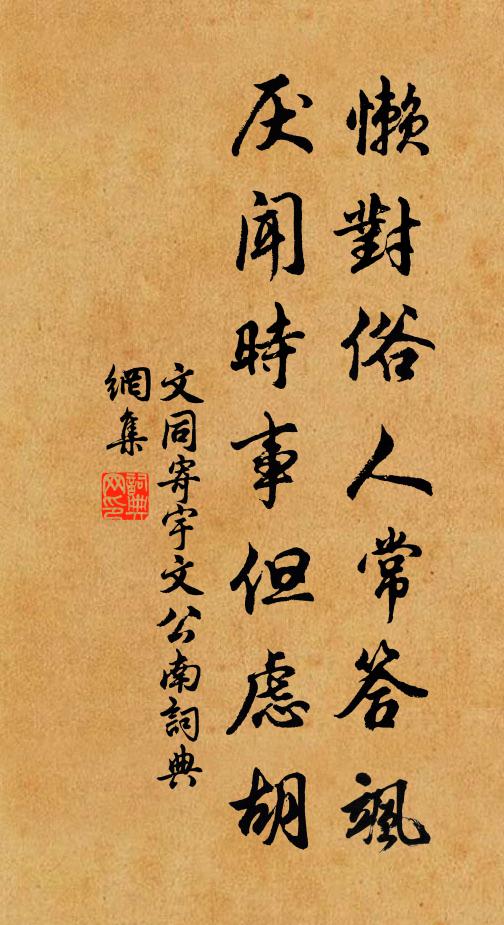 懶對俗人常答颯
厌聞時事但慮胡
文同寄宇文公南詞典
網集
詞典
网印